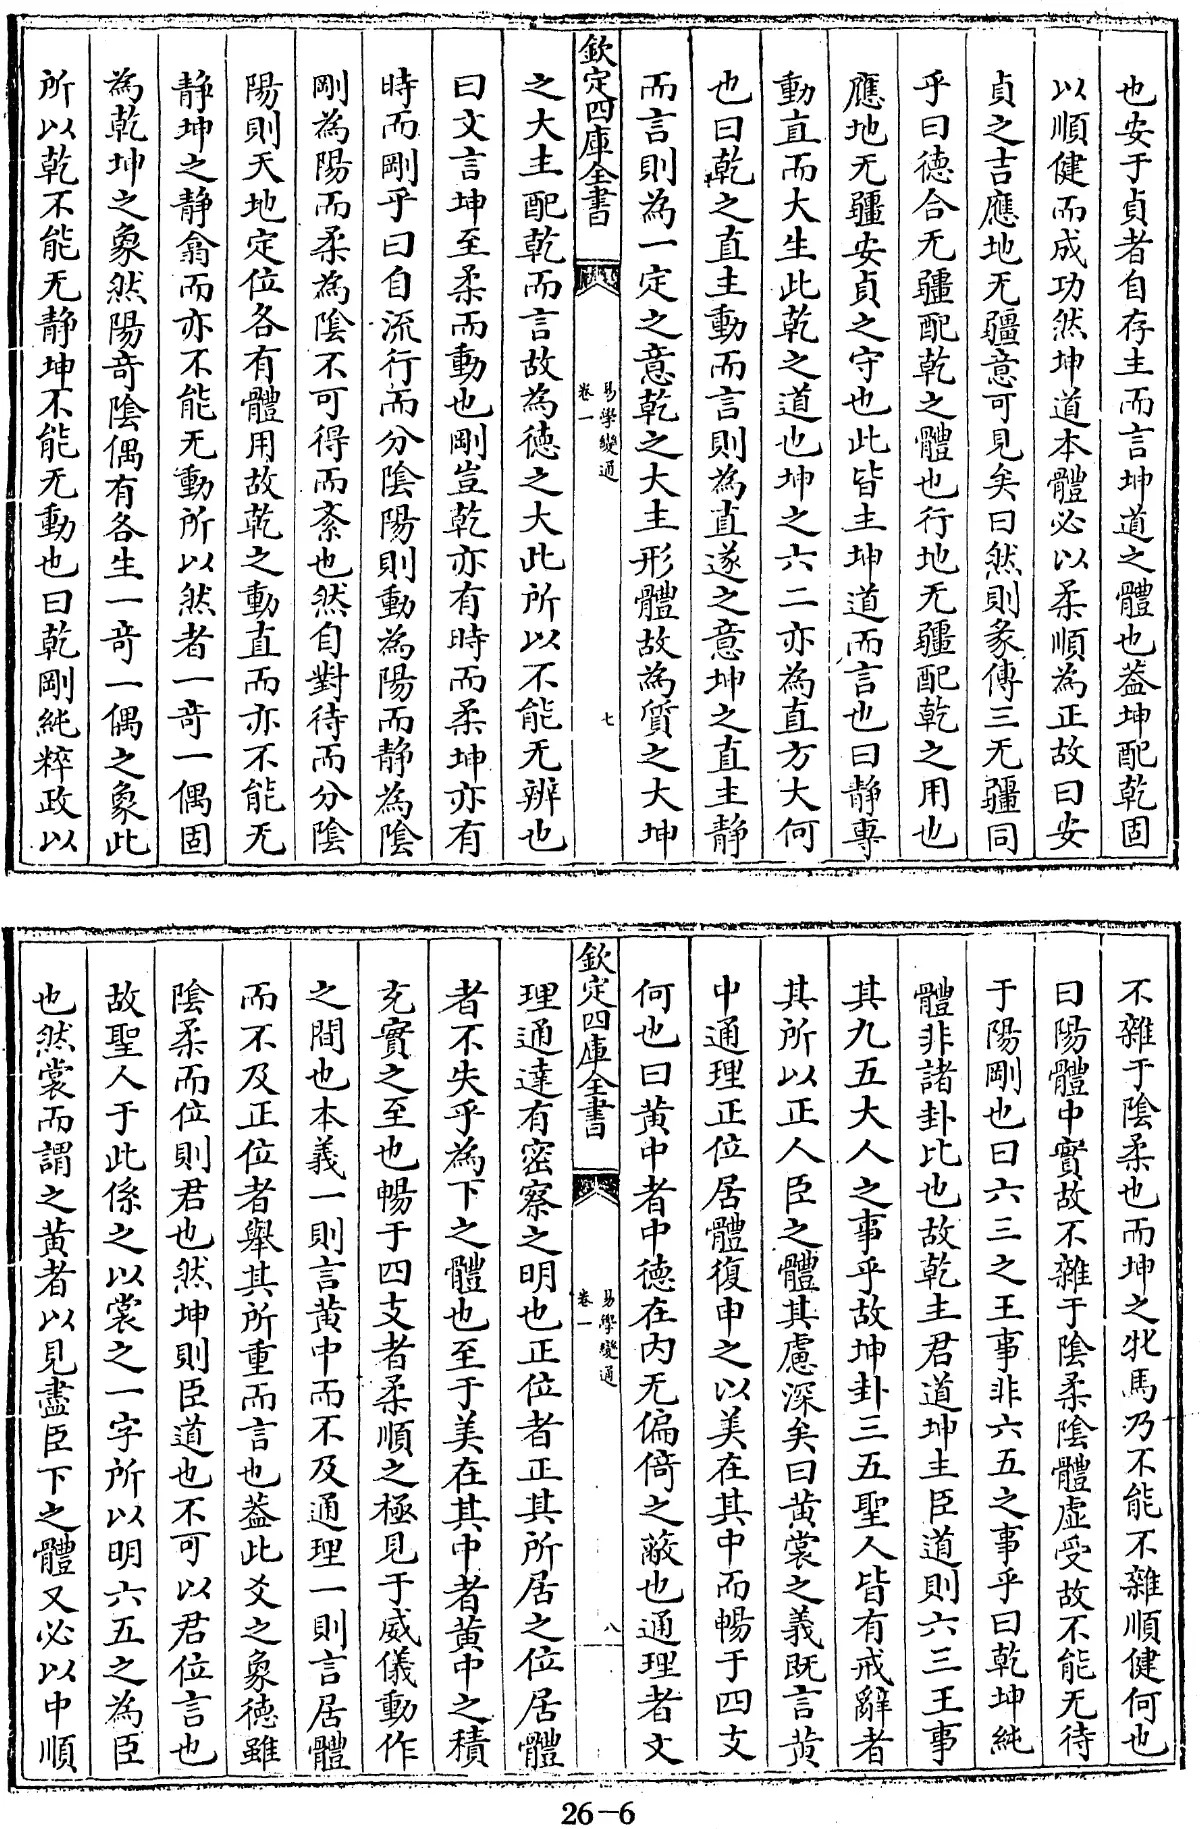 也安于貞者自存主而言坤道之體也葢坤配乾固
以順健而成功然坤道本體必以柔順為正故曰安
貞之吉應地无疆意可見矣曰然則彖傳三无疆同
乎曰德合无疆配乾之體也行地无疆配乾之用也
應地无疆安貞之守也此皆主坤道而言也曰靜專
動直而大生此乾之道也坤之六二亦為直方大何
也曰乾之直主動而言則為直遂之意坤之直主靜
而言則為一定之意乾之大主形體故為質之大坤
欽定四庫全書
易學變通
卷一
七
之大主配乾而言故為徳之大此所以不能无辨也
曰文言坤至柔而動也剛豈乾亦有時而柔坤亦有
時而剛乎曰自流行而分陰陽則動為陽而静為陰
剛為陽而柔為陰不可得而紊也然自對待而分陰
陽則天地定位各有體用故乾之動直而亦不能无
静坤之静翕而亦不能无動所以然者一竒一偶固
為乾坤之象然陽竒陰偶有各生一竒一偶之象此
所以乾不能无静坤不能无動也曰乾剛純粹政以
不雜于陰柔也而坤之牝馬乃不能不雜順健何也
曰陽體中實故不雜于陰柔陰體虛受故不能无待
于陽剛也曰六三之王事非六五之事乎曰乾坤純
體非諸卦比也故乾主君道坤主臣道則六三王事
其九五大人之事乎故坤卦三五聖人皆有戒辭者
其所以正人臣之體其慮深矣曰黄裳之義既言黄
中通理正位居體復申之以美在其中而暢于四支
何也曰黄中者中徳在内无偏倚之蔽也通理者文
欽定四庫全書
易學變通
卷一
八
理通達有密察之明也正位者正其所居之位居體
者不失乎為下之體也至于美在其中者黄中之積
充實之至也暢于四支者柔順之極見于威儀動作
之間也本義一則言黄中而不及通理一則言居體
而不及正位者舉其所重而言也葢此爻之象徳雖
陰柔而位則君也然坤則臣道也不可以君位言也
故聖人于此係之以裳之一字所以明六五之為臣
也然裳而謂之黄者以見盡臣下之體又必以中順
26-6